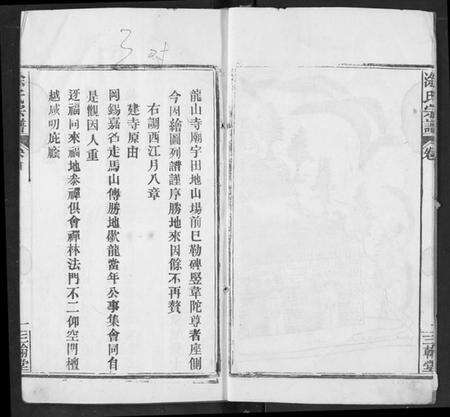 塗氏宗譜 卷
三翰堂
龍山寺廟宇田地山場前已勒碑竪韋陀尊者座側
今因繪圖列譜謹序勝地來因餘不再贅
右調西江月八章
建寺原由
岡錫嘉名走馬山傳勝地歇龍當年公事集會同自
是觀因人重
迓福同來福地參禪俱會禪林法門不二仰空門檀
越咸叨庇廕
宗譜
三翰堂